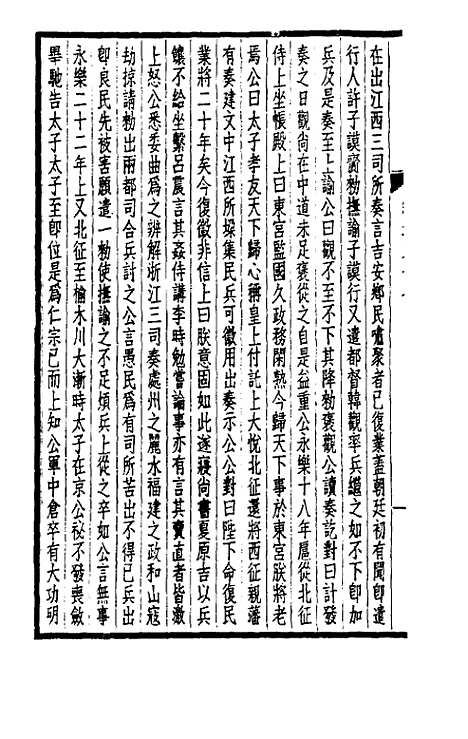 在出江西三司所奏言吉安鄉民嘯聚者已復業蓋朝廷初有聞卽遣
行人許子謨齎勑撫諭子謨行又遣都督韓觀率兵繼之如不下卽加
兵及是奏至上諭公曰觀不至不下其降勑褒觀公讀奏訖對曰計發
奏之日觀尚在中道未足褒從之自是益重公永樂十八年扈從北征
侍上坐帳殿上曰東宮監國久政務閑熟今歸天下事於東宮朕將老
焉公曰太子孝友天下歸心稱皇上付託上大悅北征還將西征親藩
有奏建文中江西所操集民兵可徵用出奏示公公對曰陛下命復民
業將二十年矣今復徵非信上曰朕意固如此遂寢尚書夏原吉以兵
饟不給坐繫呂震言其姦侍講李時勉嘗論事亦有言其賣直者皆激
上怒公悉委曲爲之辨解浙江三司奏處州之麗水福建之政和山寇
劫掠請勑出兩都司合兵討之公言愚民爲有司所苦出不得已兵出
卽良民先被害願遣一勑使撫諭之不足煩兵上從之卒如公言無事
永樂二十二年上又北征至榆木川大漸時太子在京公祕不發喪斂
畢馳告太子太子至卽位是爲仁宗已而上知公軍中倉卒有大功明